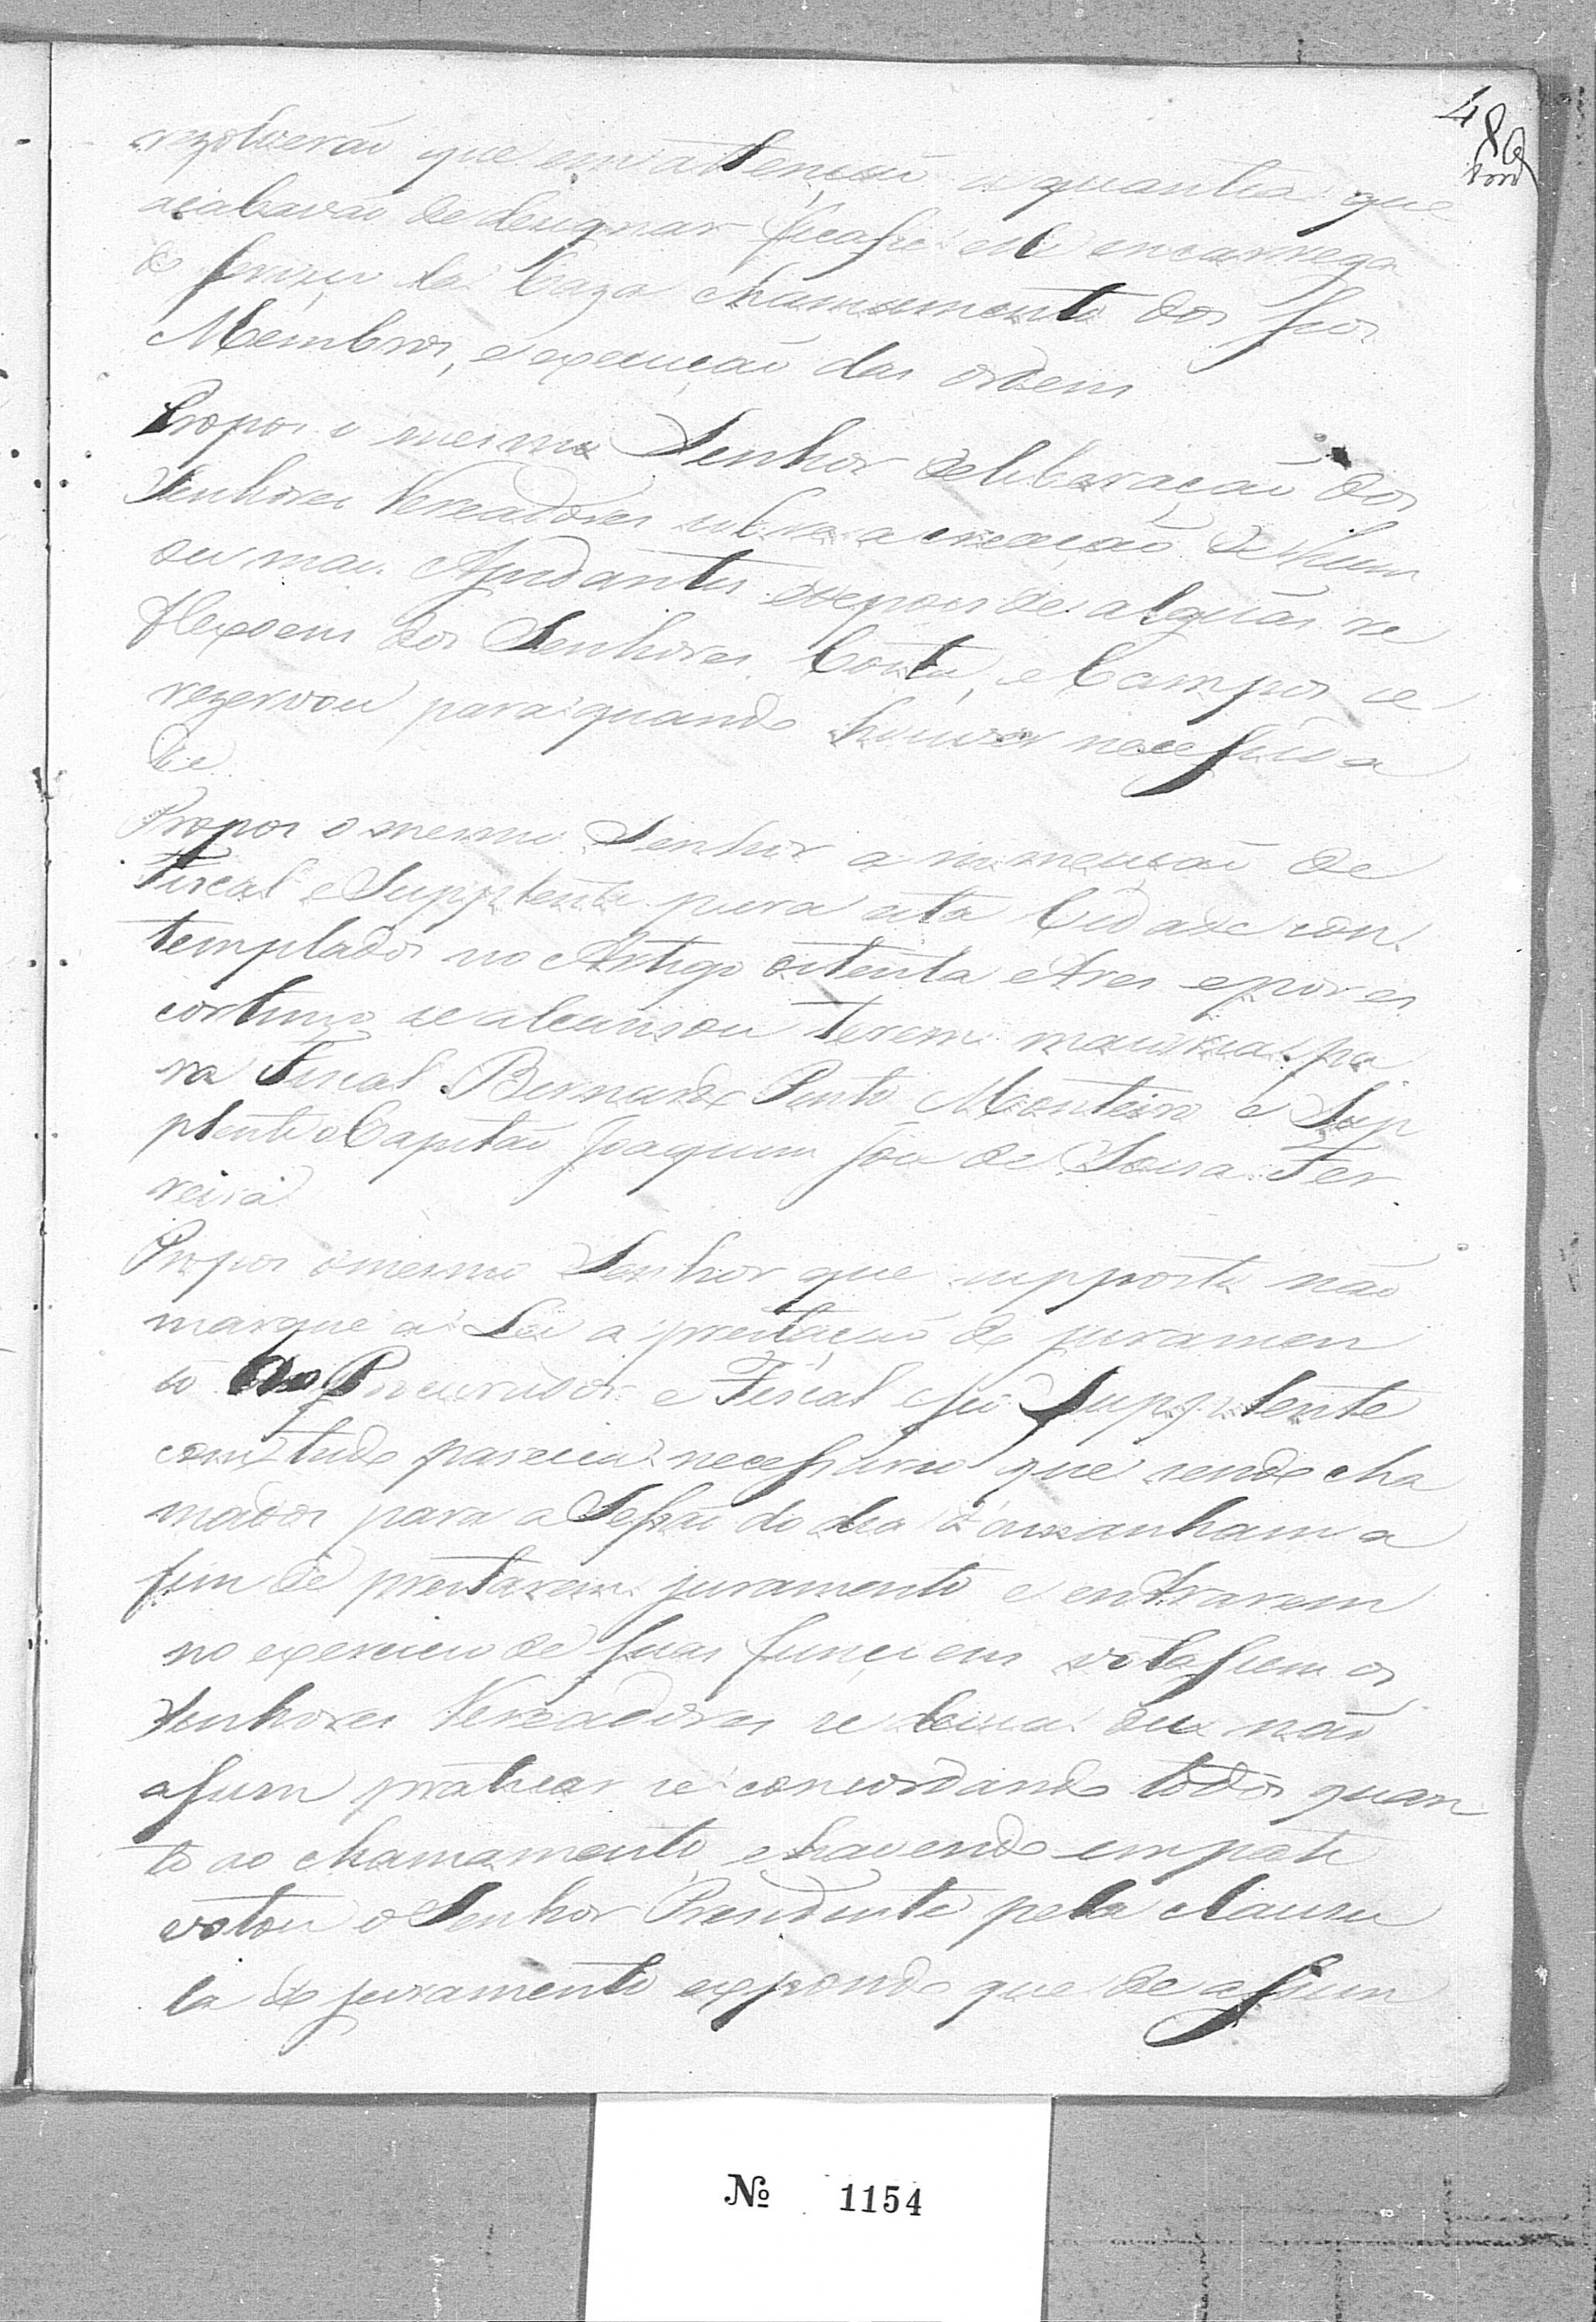 486
rezolverão que em attenção a quantia que
acabavão de designar ficasse elle encarrega
do serviço da Caza chamamento dos seos
Membros, e execução das ordens
Propos o mesmo Senhor deliberação dos
Senhores Vereadores sobre a creação de hum
ou mais Ajudantes e depois de alguãs re
flexoens dos Senhores Costa, e Campos se
rezervou para quando houver necessida
de
Propos o mesmo Senhor a nomeação de
Fiscal e Supplente para esta Cidade con
templados no Artigo oitenta e tres e por es
cortinio se alcansou terem maioria pa
ra Fiscal Bernardo Pinto Monteiro e Sup
plente o Capitão Joaquim Joze de Sousa Fer
reira
Propos o mesmo Senhor que supposto não
marque a Lei a prestação de juramen
to ao Procurador e Fiscal e seo Supplente
com tudo parecia necessario que sendo cha
mados para a Sessão do dia d'amanham a
fim de prestarem juramento e entrarem
no exercicio de suas funcoens votassem os
Senhores Vereadores se devia ou não
assim praticar se concordando todos quan
to ao chamamento, e havendo empate
votou o Senhor Presidente pela clausu
la do juramento expondo que de assim
Nº 1154